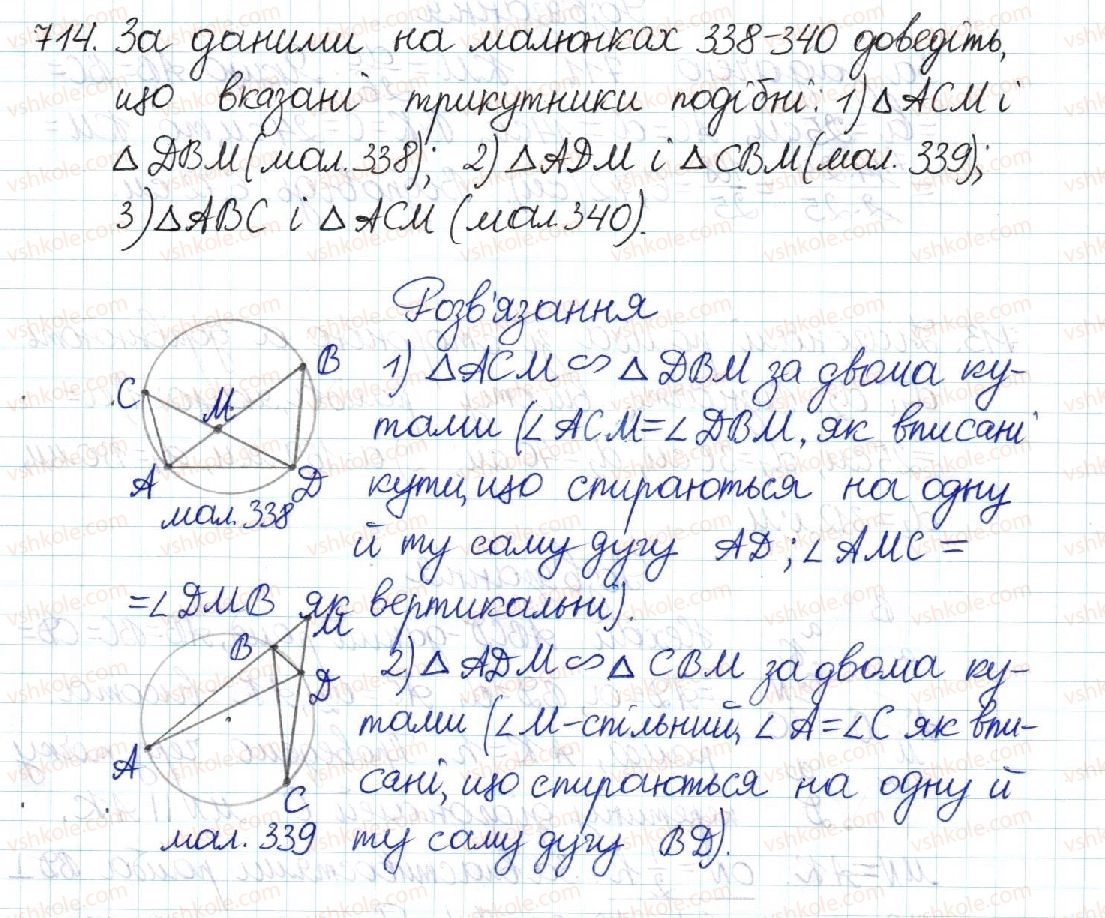 714. За даними на малюнках 338-340 доведіть,
що вказані трикутники подібні: 1) △ АСМ і
△ DBM (мал. 338); 2) △ ADM і △ CBM (мал. 339);
3) △ АВС і △ АСМ (мал. 340).
Розв'язання
1) △ АСМ ∽ △ DBM за двома ку-
тами (∠ АСМ = ∠ DBM, як вписані
кути, що спираються на одну
й ту саму дугу AD; ∠ АМС =
= ∠ DMB як вертикальні).
C
B
M
A
D
мал. 338
2) △ ADM ∽ △ CBM за двома ку-
тами (∠ М - спільний, ∠ А = ∠ С як впи-
сані, що спираються на одну й
ту саму дугу BD).
M
B
D
A
C
мал. 339
vshkole.com